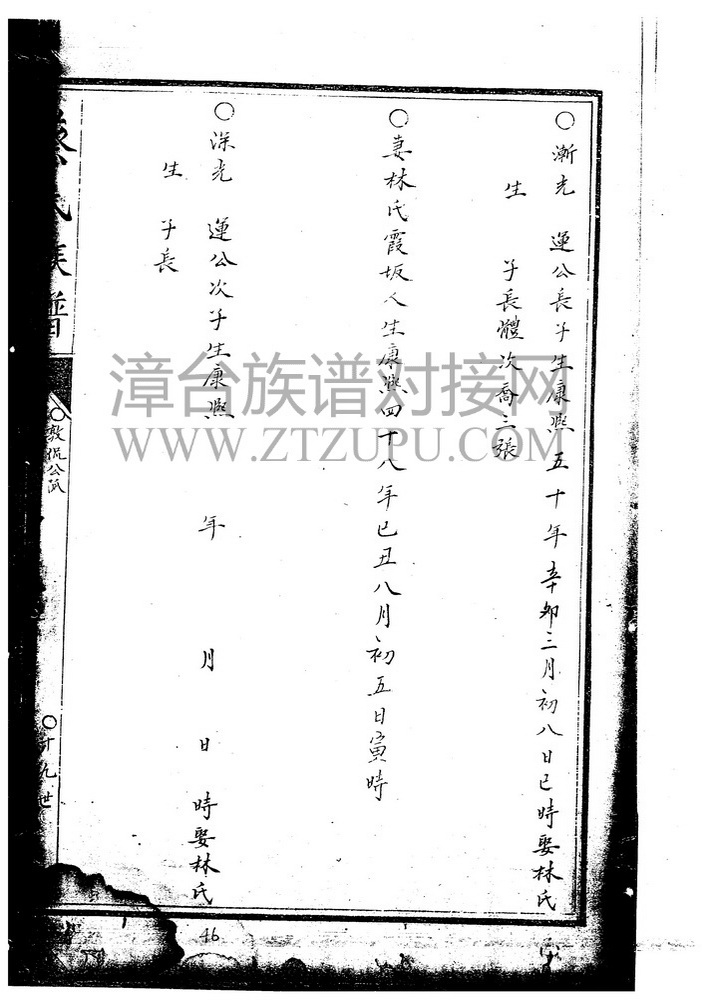 ○漸光 運公長子生康熙五十年辛卯三月初八日巳時娶林氏
生 子長體次喬三張
○妻林氏霞坂人生康熙四十八年己丑八月初五日寅時
○深光 運公次子生康熙 年 月 日 時娶林氏
生 子長
氏族譜
○敦侃公派
○十九世
漳台族谱对接网
WWW.ZTZUPU.COM
46